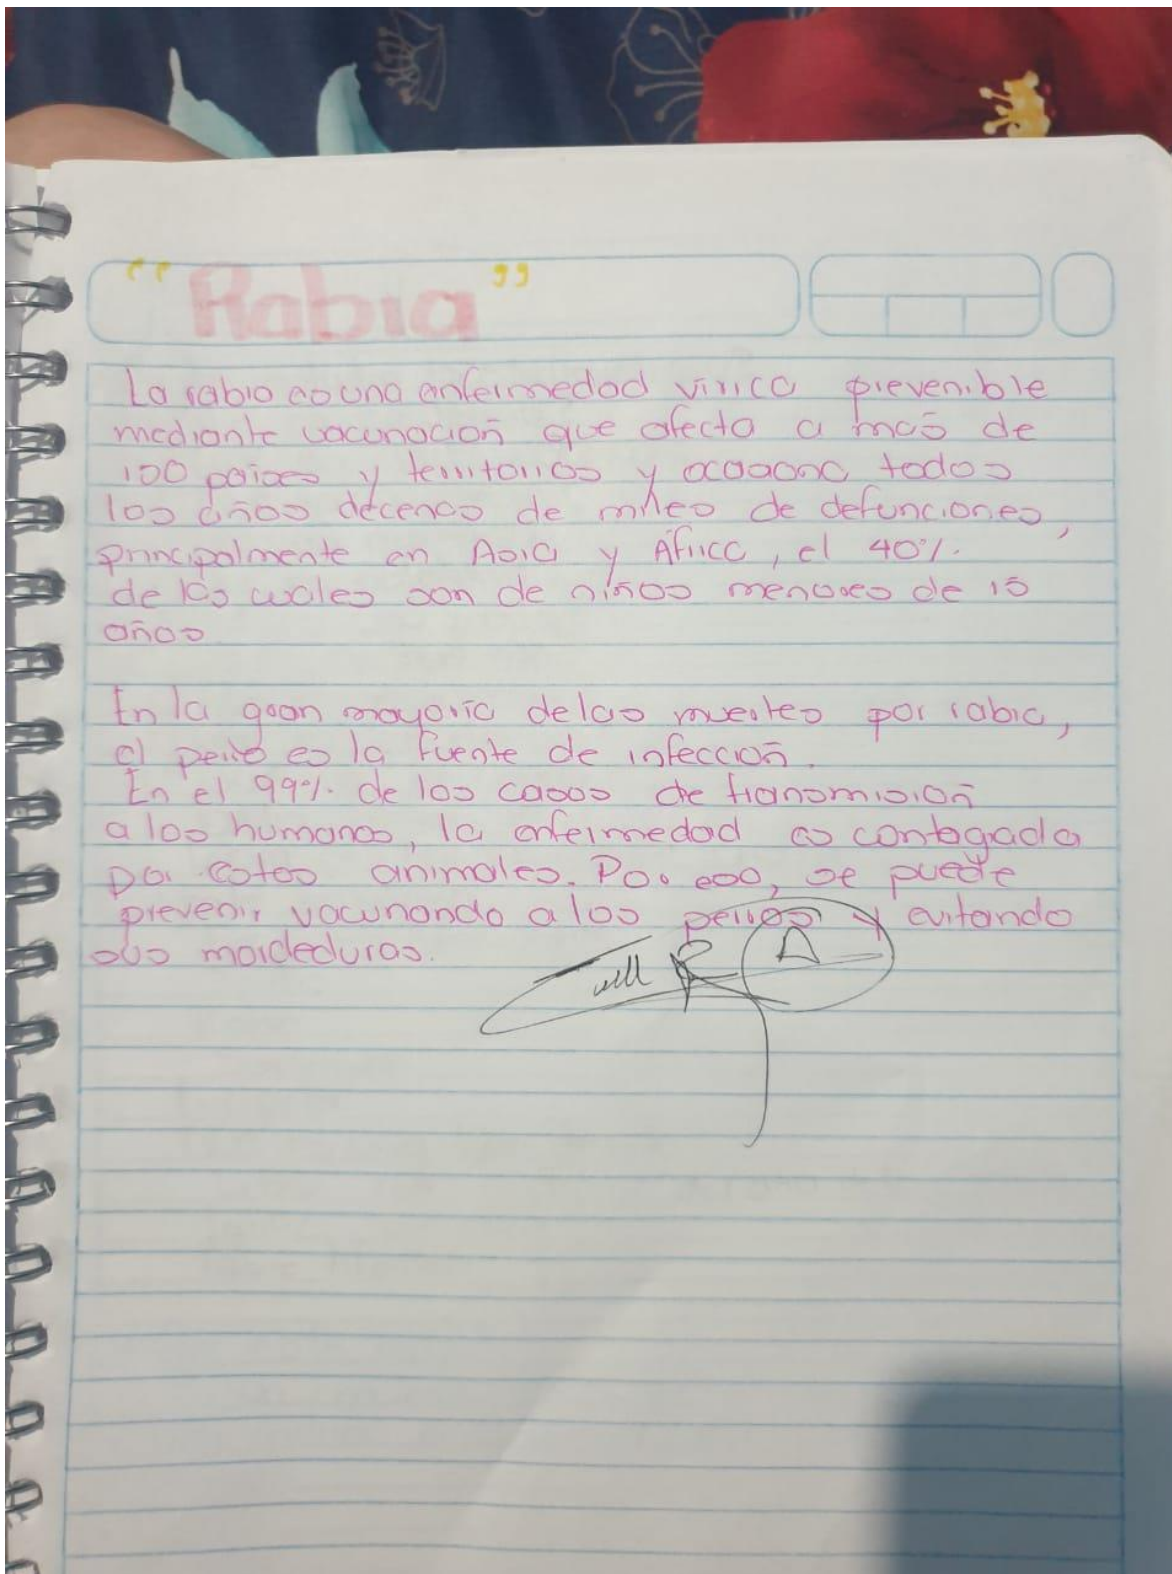 "Rabia"
La rabia es una enfermedad vírica prevenible
mediante vacunación que afecta a más de
100 países y territorios y ocasiona todos
los años decenas de miles de defunciones,
principalmente en Asia y África, el 40%
de los cuales son de niños menores de 15
años
En la gran mayoría de las muertes por rabia,
el perro es la fuente de infección.
En el 99% de los casos de transmisión
a los humanos, la enfermedad es contagiada
por estos animales. Por eso, se puede
prevenir vacunando a los perros y evitando
sus mordeduras.
A